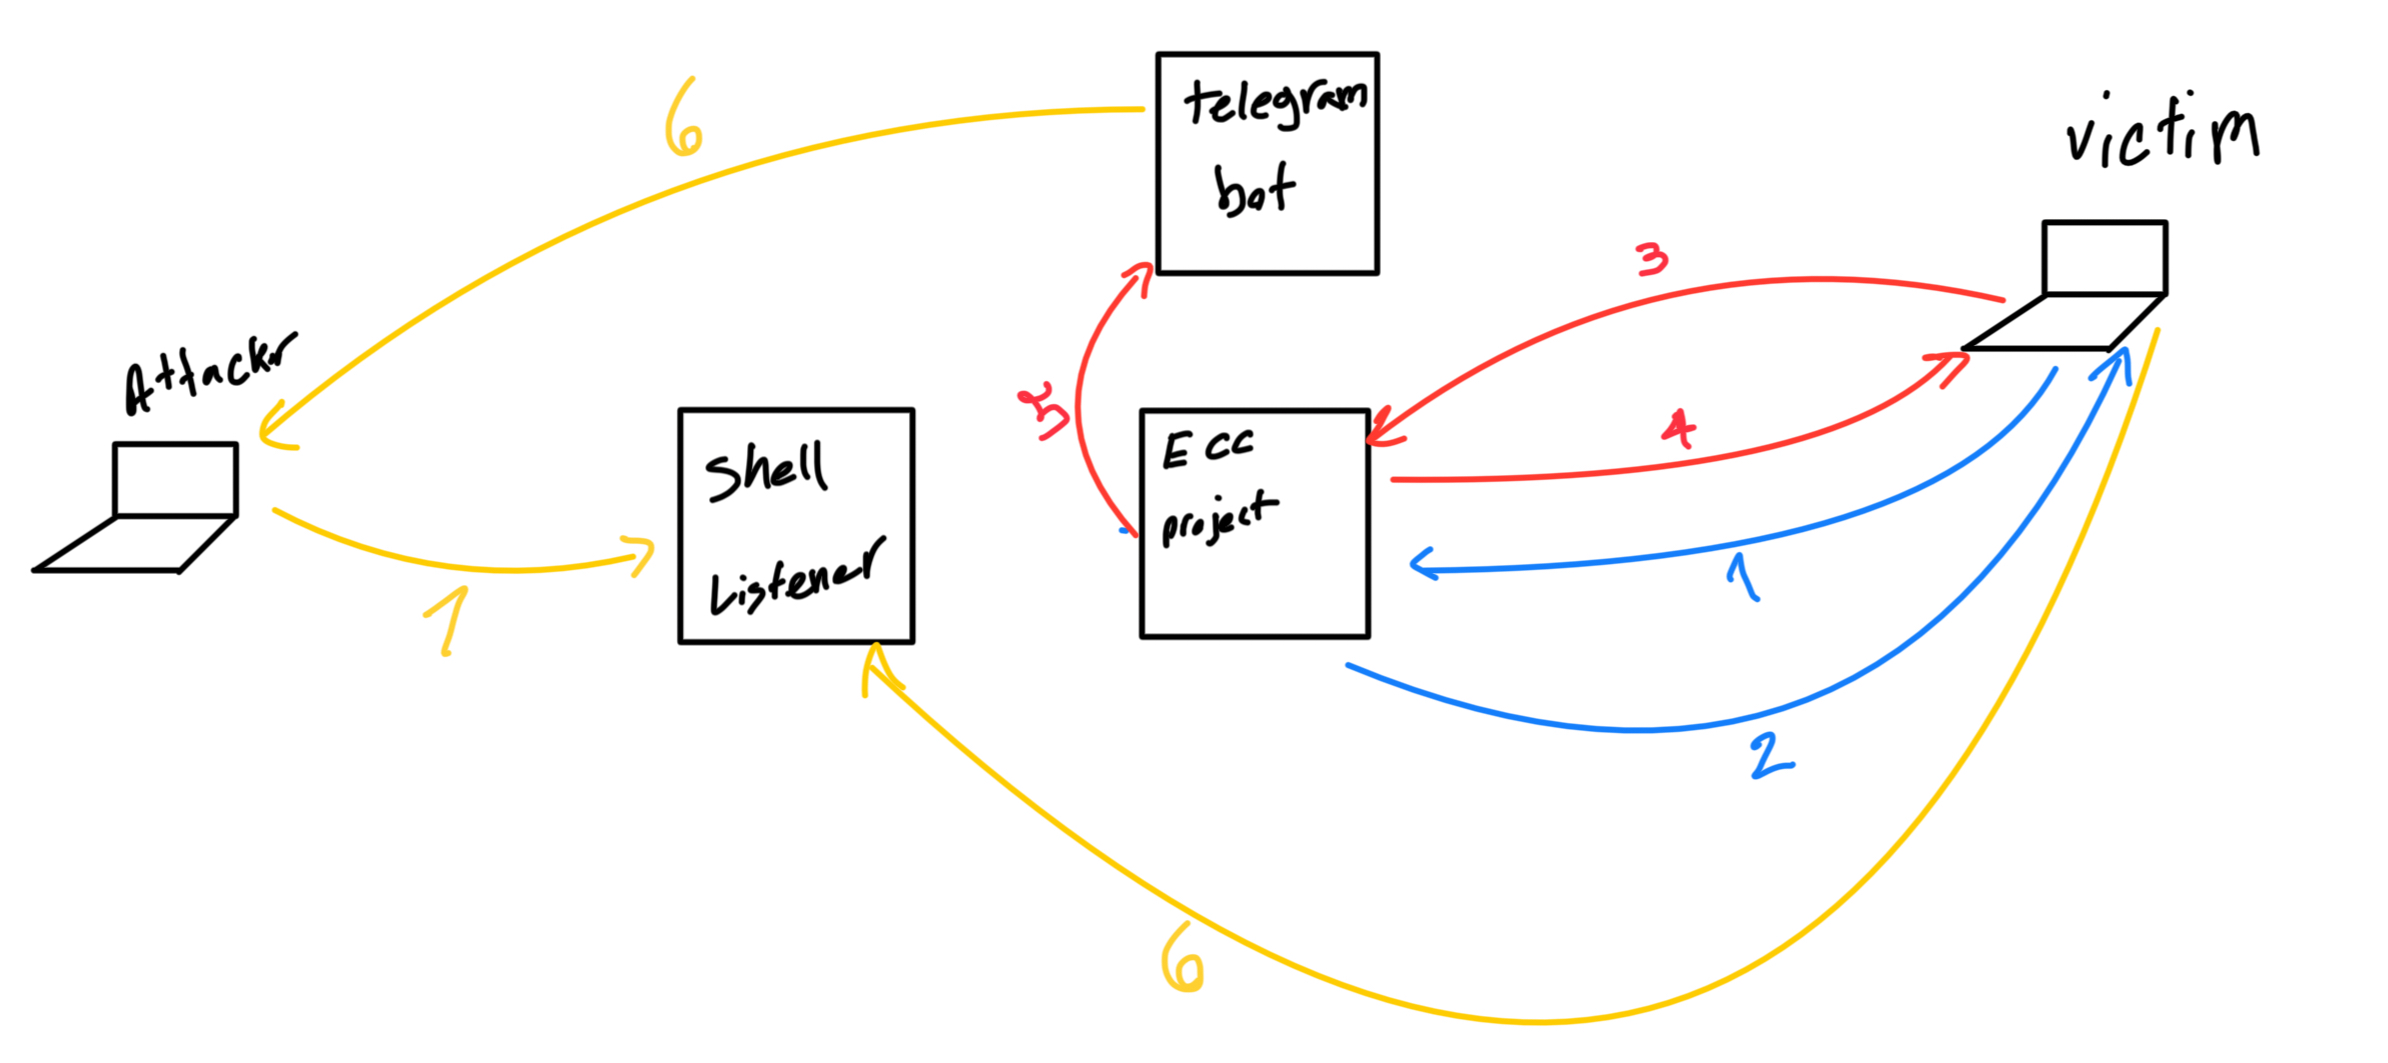 telegram
bot
victim
6
3
Attacker
5
4
Shell
Listener
ECC
project
1
1
2
6